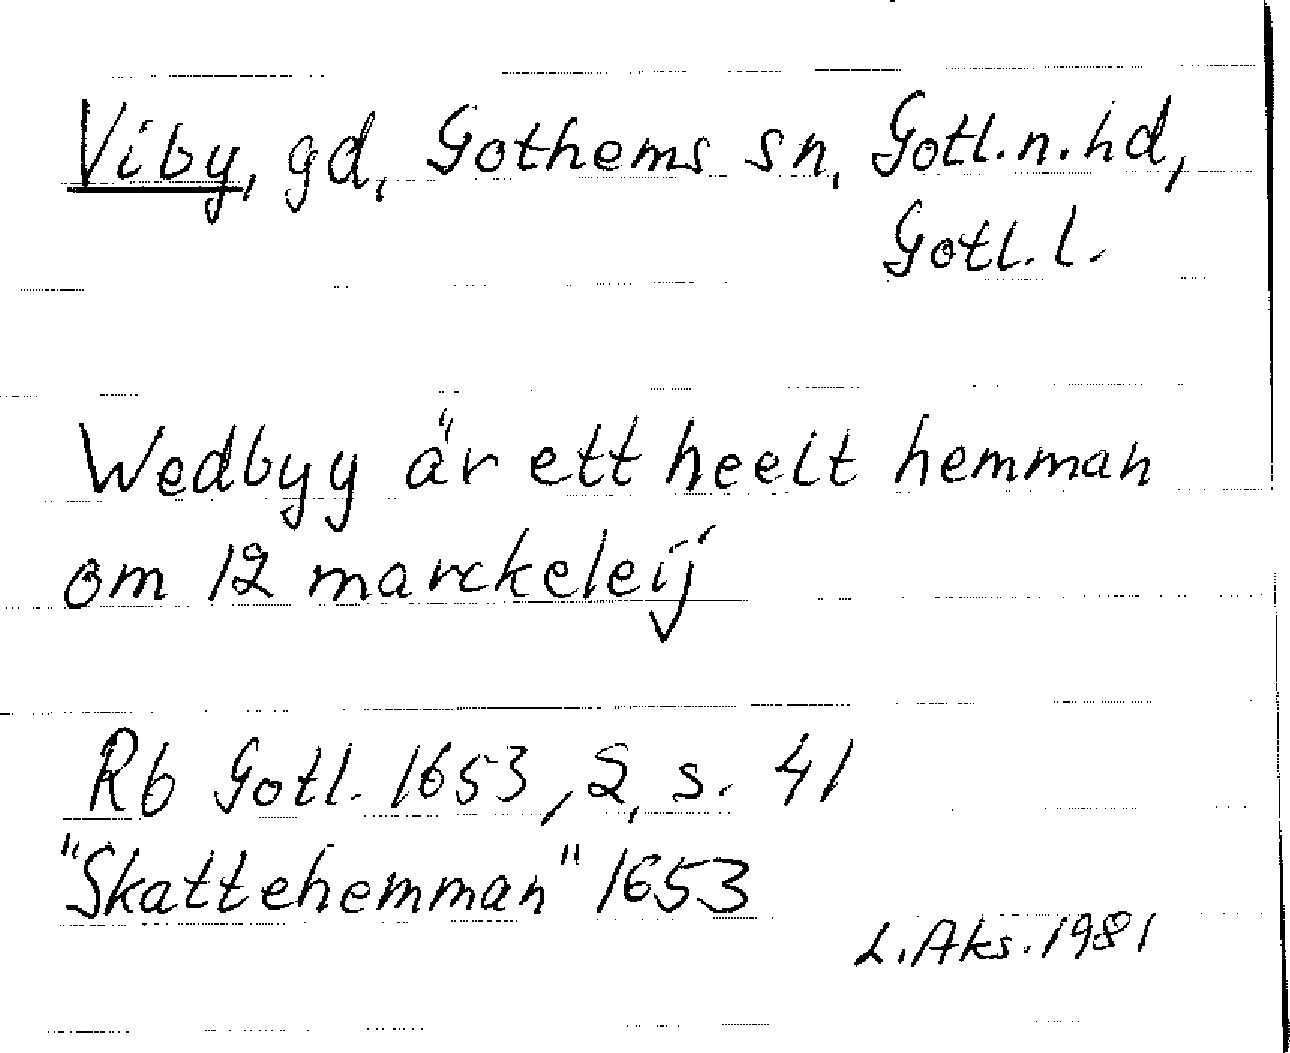 Viby, gd, Gothems sn, Gotl.n.hd,
Gotl.l.
Wedbyy är ett heelt hemman
om 12 marckeleij
Rb Gotl. 1653, 2, s. 41
"Skattehemman" 1653
L.Aks.1981